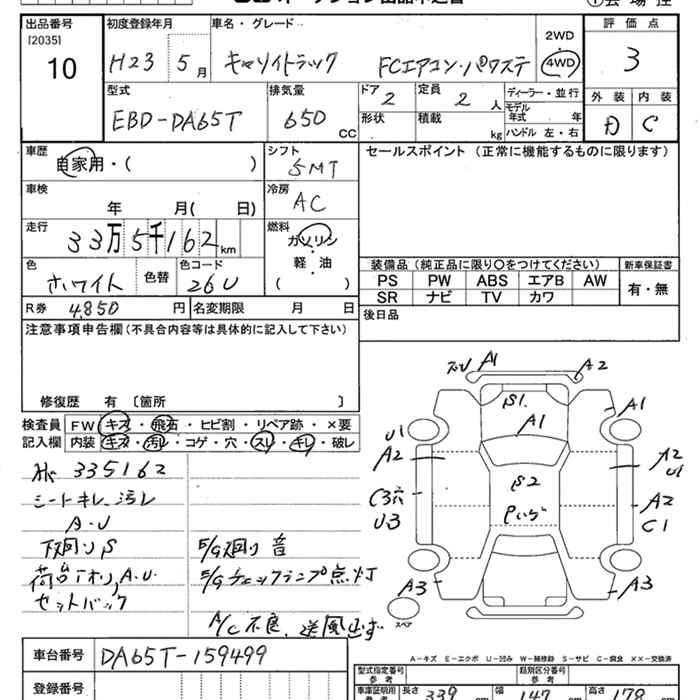 出品番号
[2035]
10
初度登録年月
H23 5月
車名・グレード
キャリイトラック FCエアコン・パワステ
2WD
4WD
評価点
3
外装 内装
D C
型式
EBD-DA65T
排気量
650 CC
ドア 2
形状
定員 2 人
積載 kg
ディーラー・並行
モデル年式 年
ハンドル 左・右
車歴
自家用・( )
シフト
5MT
セールスポイント (正常に機能するものに限ります)
車検
年 月( 日)
冷房
AC
走行
33万5千162km
燃料
ガソリン
軽・油
( )
色
ホワイト
色替
色コード
26U
装備品 (純正品に限り○をつけてください)
新車保証書
PS PW ABS エアB AW
SR ナビ TV カワ
有・無
R券 4,850 円
名変期限 月 日
後日品
注意事項申告欄(不具合内容等は具体的に記入して下さい)
修復歴 有 〔箇所 〕
検査員
記入欄
FW キズ・飛石・ヒビ割・リペア跡・×要
内装 キズ・汚れ・コゲ・穴・スレ・キレ・破レ
335162
シートキレ、汚レ
A・U
下廻りS
E/G廻り音
A.U.
E/Gチェックランプ点灯
セットバック
A/C不良、送風出ず
A1
A2
S1
A1
A1
U1
A2
A2
U1
S2
C3穴
U3
A2
C1
A3
A3
スペア
A-キズ E-エクボ U-凹み W-補修跡 S-サビ C-腐食 XX-交換済
車台番号
DA65T-159499
登録番号
型式指定番号
参考
類別区分番号
参考
車庫証明用
参考
長さ 339 cm
幅 147 cm
高さ 178 cm